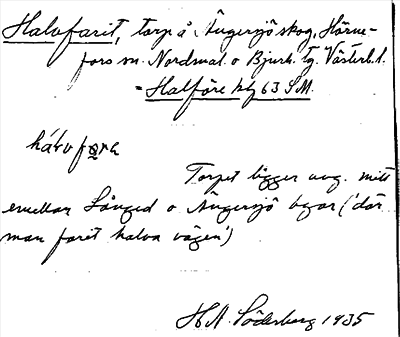 Halvfarit, torp å Ångersjö skog, Hörne-
fors sn. Nordmal. o Bjurh. tg. Västerb. l.
= Halföre kbg 63 S.M.
hálvfǫra
Torpet ligger ung. mitt
emellan Långed o Ångersjö byar ('där
man farit halva vägen')
H.A. Söderberg 1935